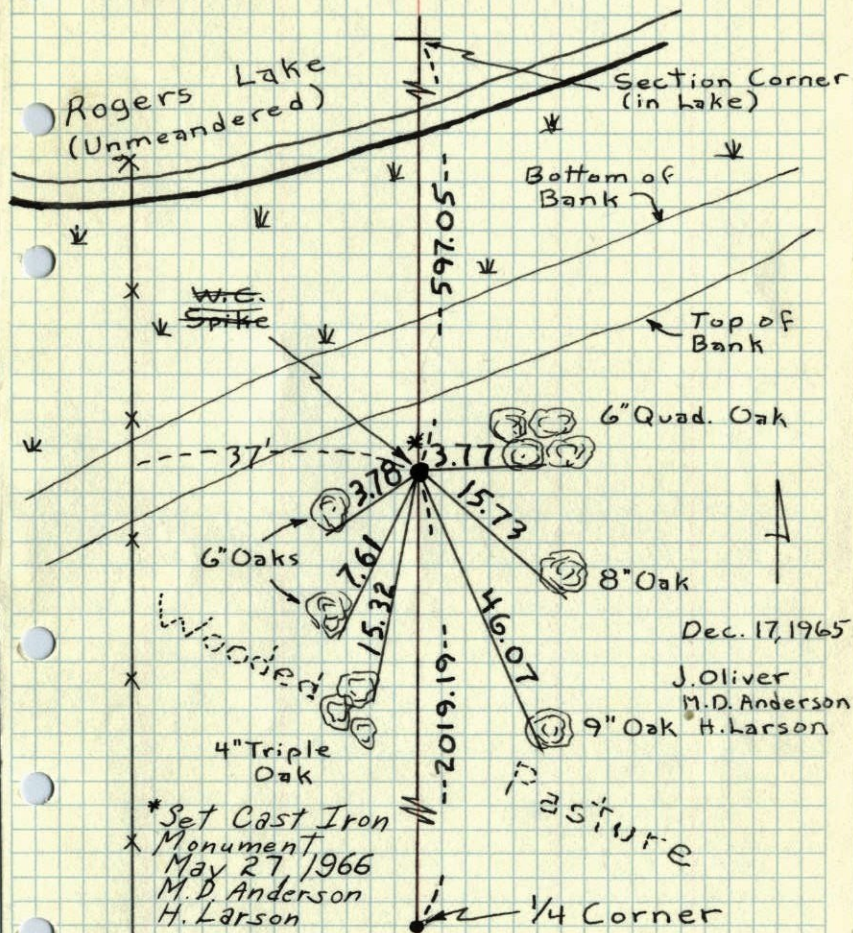 Rogers Lake
(Unmeandered)
Section Corner
(in Lake)
Bottom of
Bank
597.05
W.C.
Spike
Top of
Bank
6"Quad. Oak
37'
*
3.77
3.78
15.73
6"Oaks
7.61
15.32
46.07
8"Oak
Wooded
Dec. 17, 1965
J. Oliver
M.D. Anderson
H. Larson
2019.19
9"Oak
4"Triple
Oak
Pasture
*Set Cast Iron
Monument
May 27 1966
M.D. Anderson
H. Larson
1/4 Corner